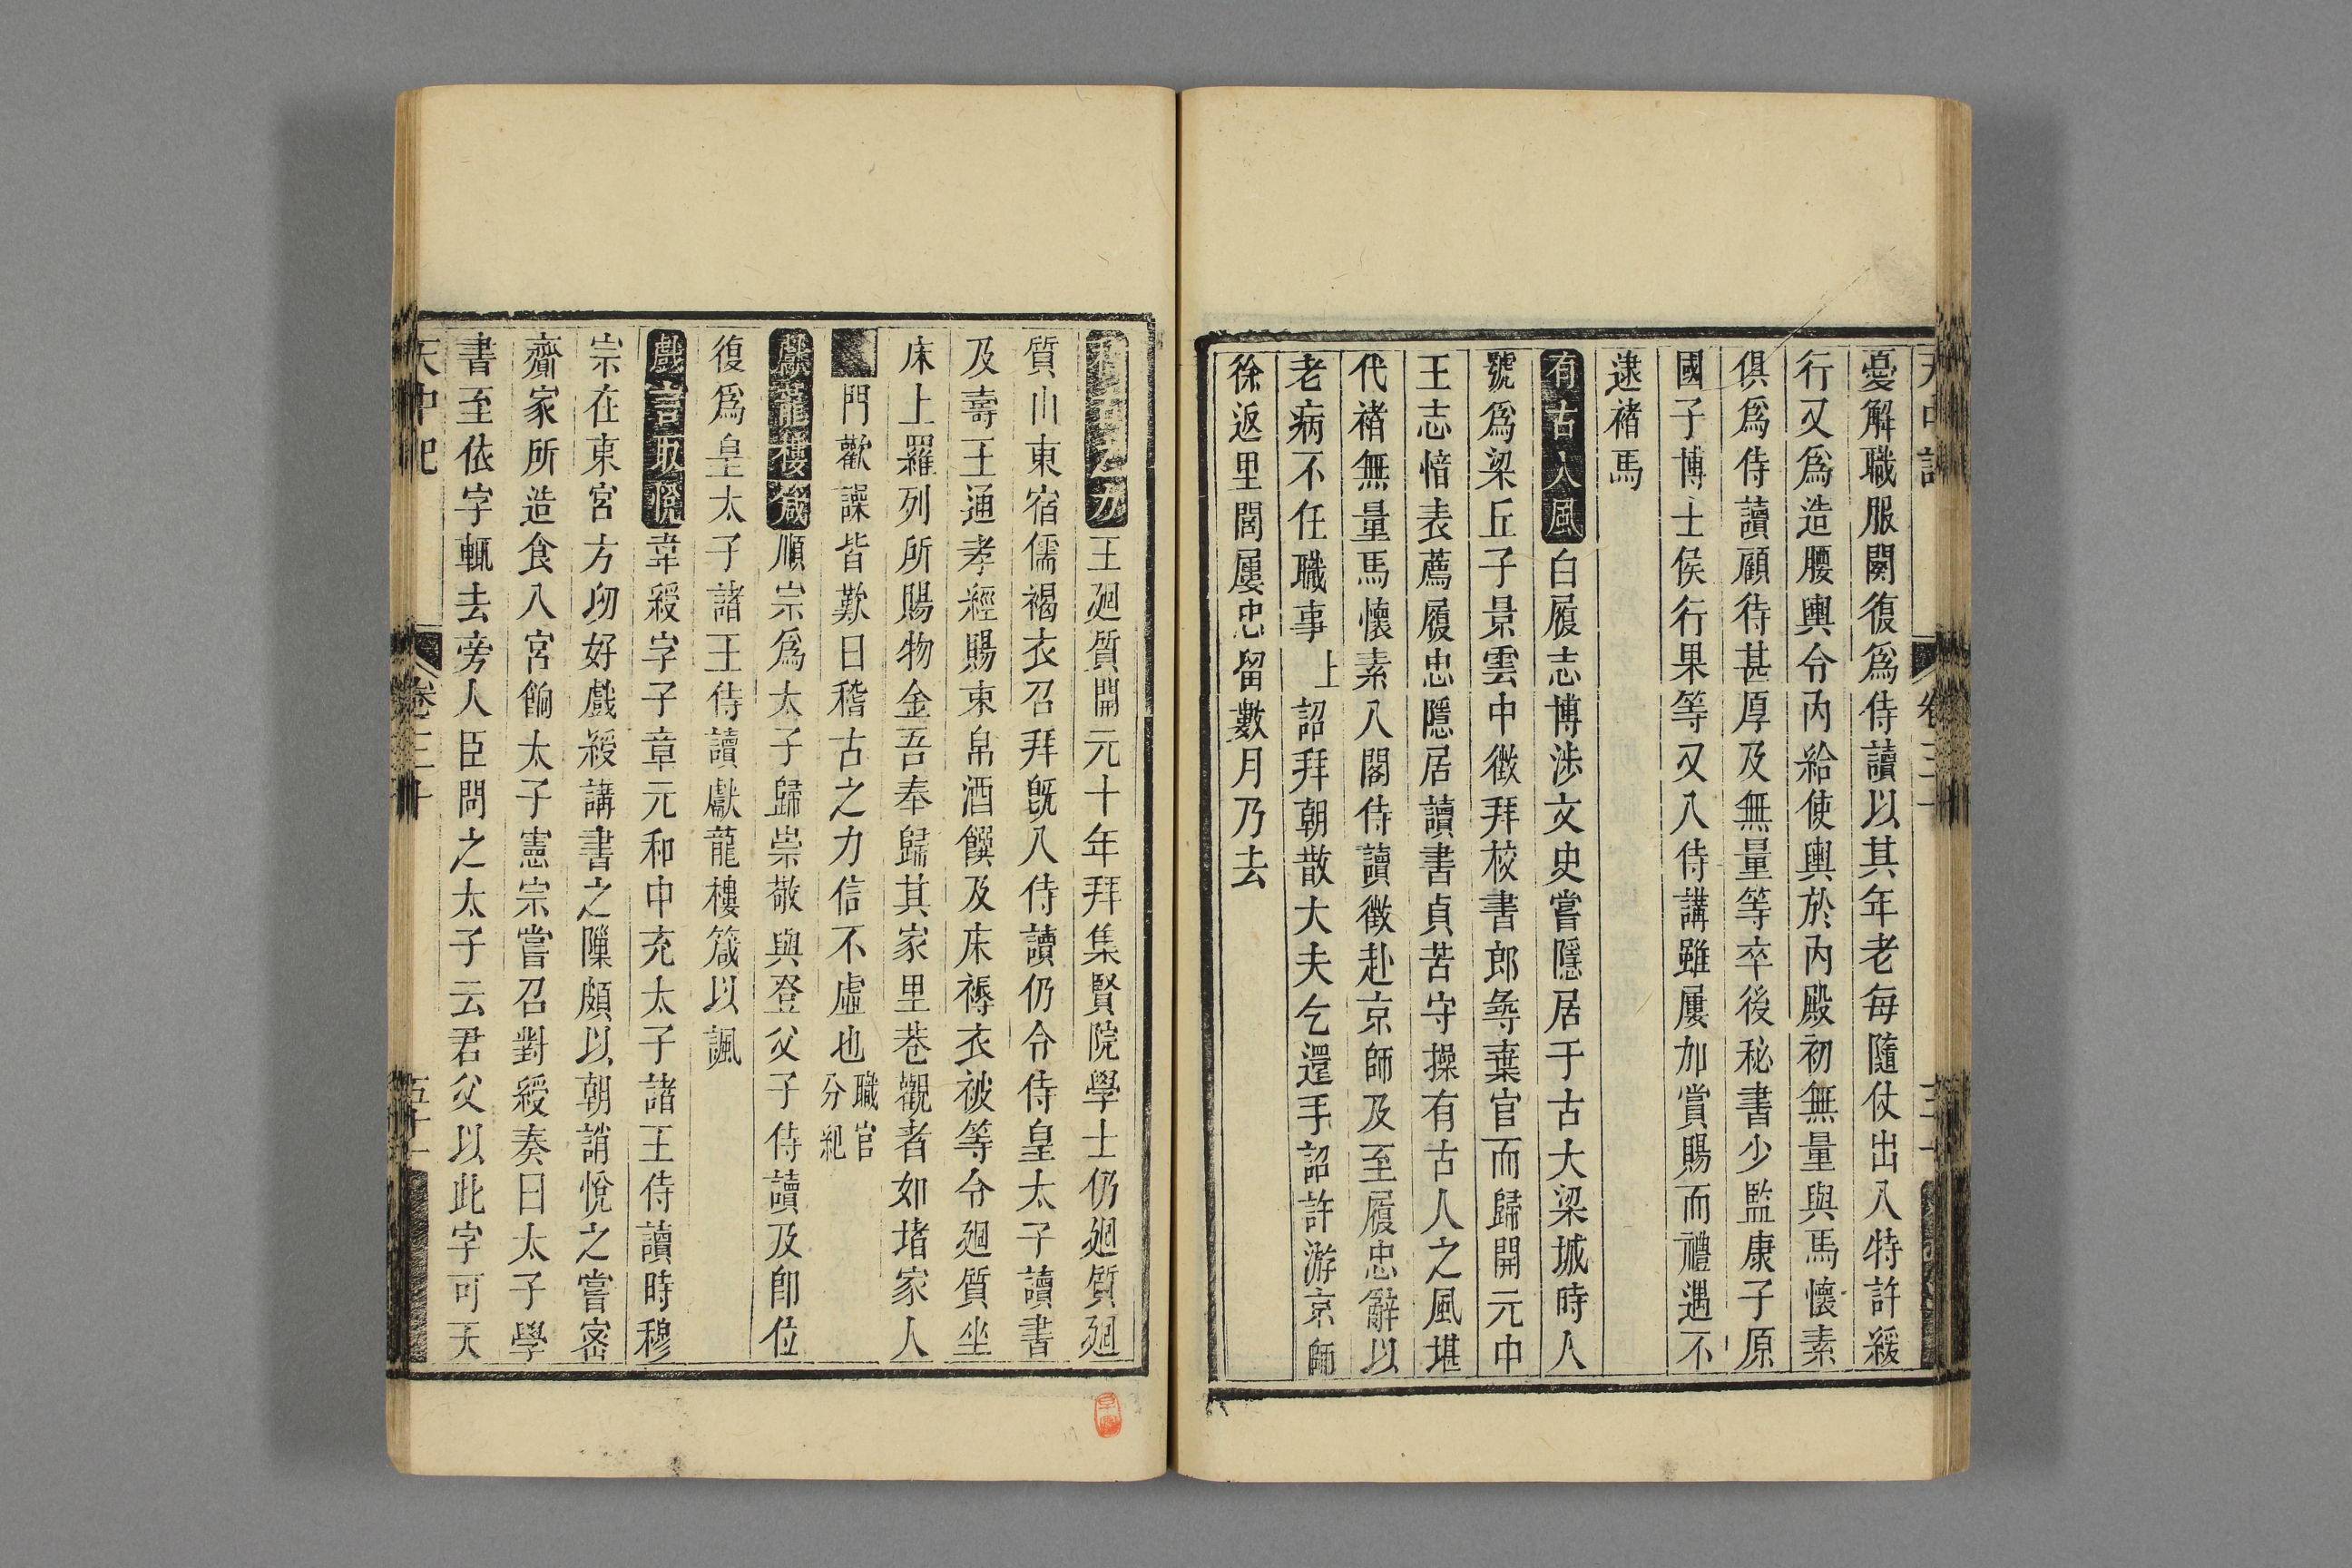 憂解職服闋復爲侍讀以其年老每隨仗出入特許緩
行又爲造腰輿令內給使輿於內殿初無量與馬懷素
俱爲侍讀顧待甚厚及無量等卒後秘書少監康子原
國子博士侯行果等又入侍講雖屢加賞賜而禮遇不
逮褚馬
有古人風白履忠博涉文史嘗隱居于古大梁城時人
號爲梁丘子景雲中徵拜校書郎尋棄官而歸開元中
王志愔表薦履忠隱居讀書貞苦守操有古人之風堪
代褚無量馬懷素入閣侍讀徵赴京師及至履忠辭以
老病不任職事上詔拜朝散大夫乞還手詔許游京師
徐返里閭屢忠留數月乃去
稽古之力王廻質開元十年拜集賢院學士仍廻質廻
質山東宿儒褐衣召拜旣入侍讀仍令侍皇太子讀書
及壽王通孝經賜東帛酒饌及床褥衣被等令廻質坐
床上羅列所賜物金吾奉歸其家里巷觀者如堵家人
門歡譟皆歎曰稽古之力信不虛也職官分紀
獻龍樓箴順宗爲太子歸崇敬與登父子侍讀及卽位
復爲皇太子諸王侍讀獻龍樓箴以諷
戲言取悅韋綬字子章元和中充太子諸王侍讀時穆
宗在東宮方幼好戲綬講書之隟頗以朝誚悅之嘗密
齎家所造食入宮餉太子憲宗嘗召對綬奏曰太子學
書至依字輒去旁人臣問之太子云君父以此字可天
天中記
卷三十
五十一